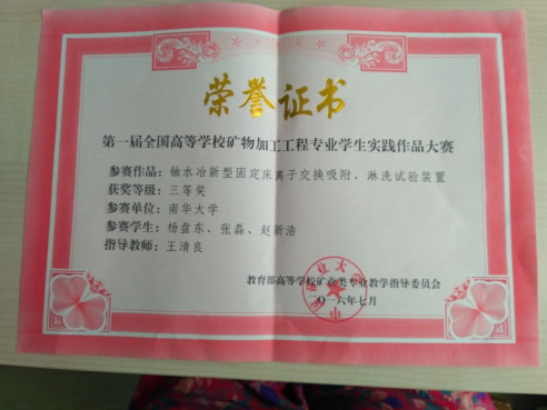 荣誉证书
第一届全国高等学校矿物加工工程专业学生实践作品大赛
参赛作品：铀水冶新型固定床离子交换吸附、淋洗试验装置
获奖等级：三等奖
参赛单位：南华大学
参赛学生：杨盘东、张磊、赵新浩
指导教师：王清良
教育部高等学校矿业类专业教学指导委员会
二〇一六年七月